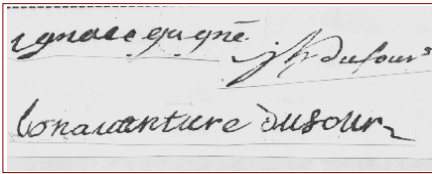 ignace gagné
jh Dufour
bonaventure Dufour